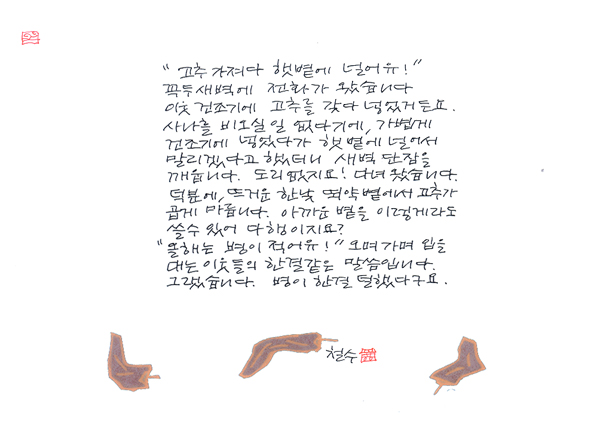 "고추 가져다 햇볕에 널어유!"
꼭두새벽에 전화가 왔습니다
이웃 건조기에 고추를 갖다 넣었거든요.
사나흘 비오실 일 없다기에, 가볍게
건조기에 넣었다가 햇볕에 널어서
말리겠다고 했더니 새벽 단잠을
깨웁니다. 도리없지요! 다녀왔습니다.
덕분에, 뜨거운 한낮 뙤약볕에서 고추가
곱게 마릅니다. 아까운 볕을 이렇게라도
쓸수 있어 다행이지요?
"올해는 병이 적어유!" 오며가며 입을
대는 이웃들의 한결같은 말씀입니다.
그렇습니다. 병이 한결 덜했다구요.
철수